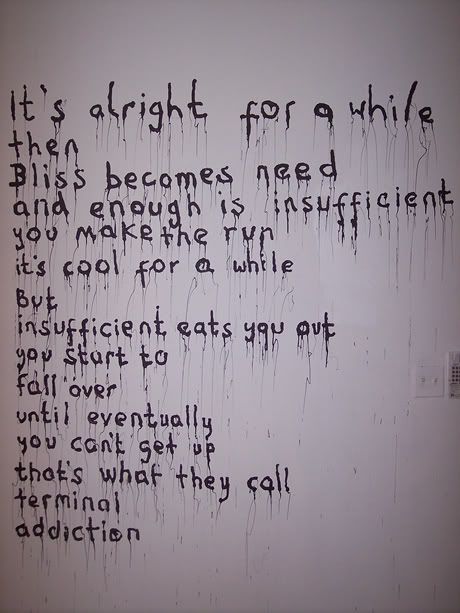 It's alright for a while
then
Bliss becomes need
and enough is insufficient
you make the run
it's cool for a while
But
insufficient eats you out
you start to
fall over
until eventually
you can't get up
that's what they call
terminal
addiction